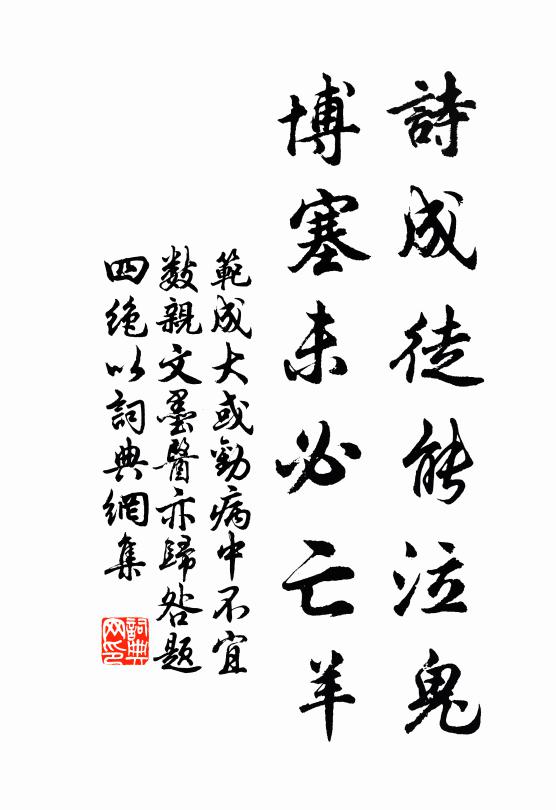 詩成徒能泣鬼
博塞未必亡羊
範成大或勸病中不宜
數親文墨醫亦歸咎題
四絶以詞典網集
詞典
网印